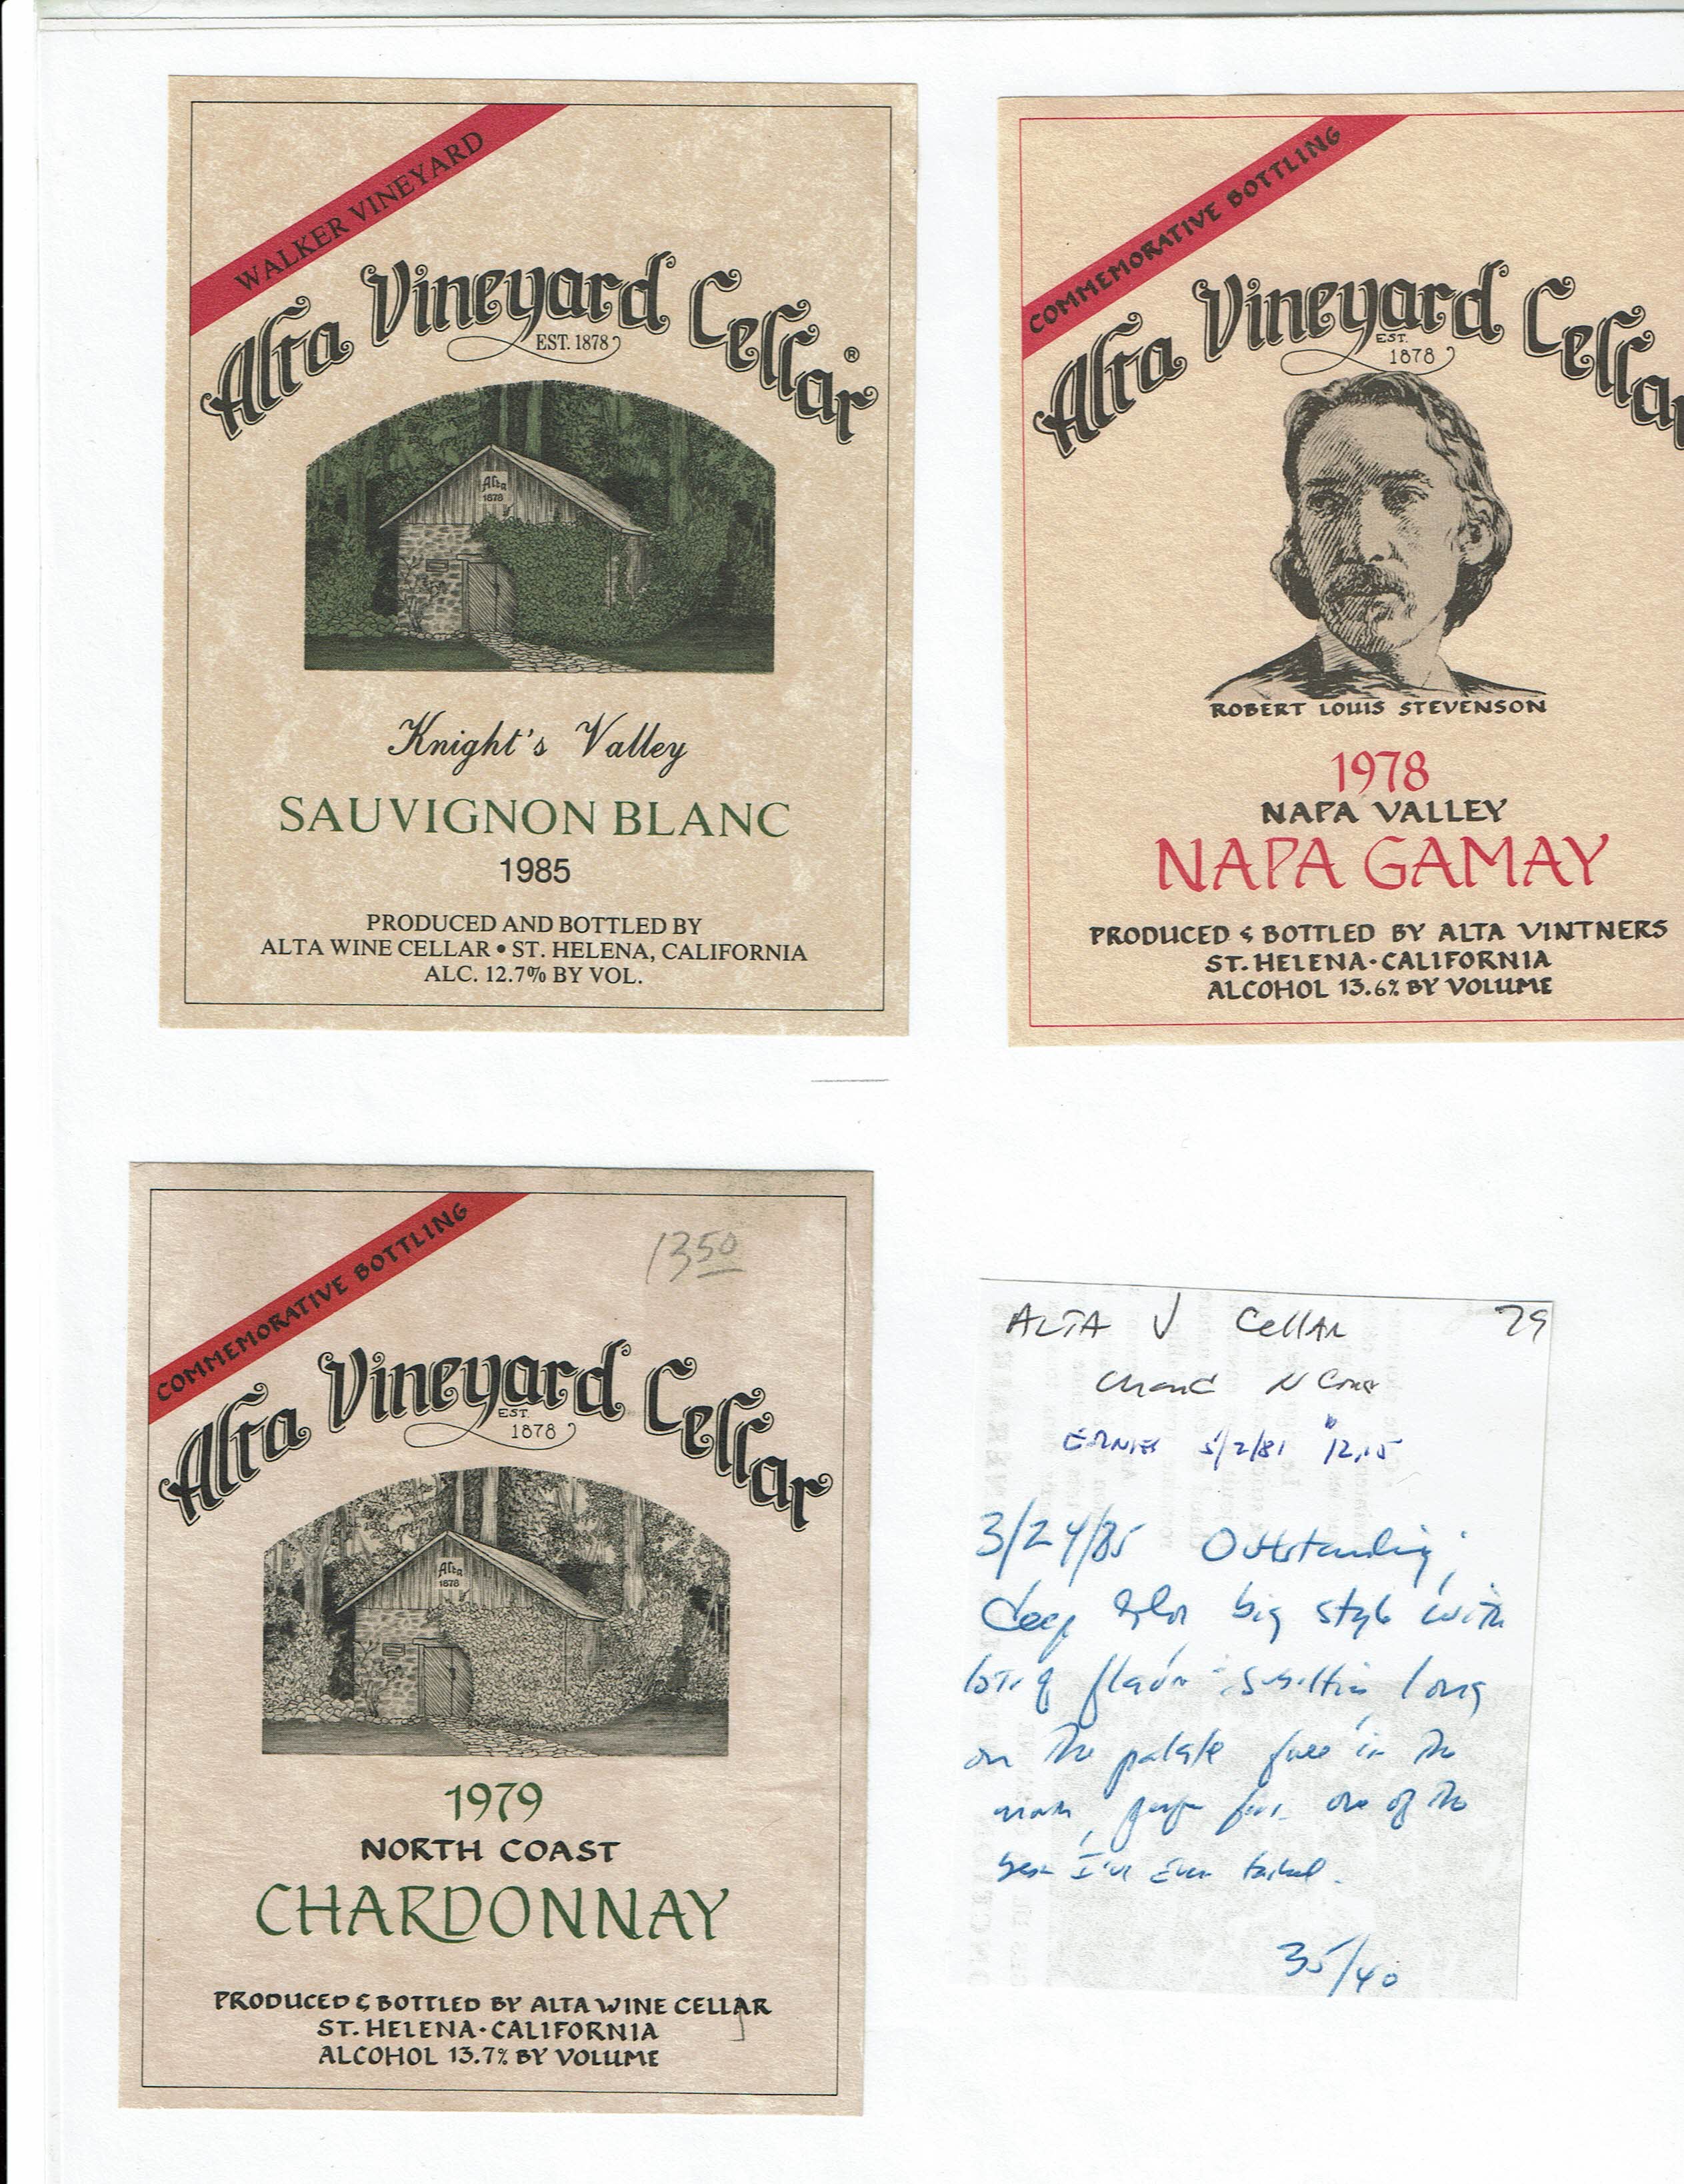 WALKER VINEYARD
Alta Vineyard Cellar ®
EST. 1878
Alta
1878
Knight's Valley
SAUVIGNON BLANC
1985
PRODUCED AND BOTTLED BY
ALTA WINE CELLAR • ST. HELENA, CALIFORNIA
ALC. 12.7% BY VOL.
COMMEMORATIVE BOTTLING
Alta Vineyard Cella
EST.
1878
ROBERT LOUIS STEVENSON
1978
NAPA VALLEY
NAPA GAMAY
PRODUCED & BOTTLED BY ALTA VINTNERS
ST. HELENA · CALIFORNIA
ALCOHOL 13.6% BY VOLUME
COMMEMORATIVE BOTTLING
1350
Alta Vineyard Cellar
EST.
1878
Alta
1878
1979
NORTH COAST
CHARDONNAY
PRODUCED & BOTTLED BY ALTA WINE CELLAR
ST. HELENA · CALIFORNIA
ALCOHOL 13.7% BY VOLUME
ALTA V Cellar 79
Chard N Coast
ERNIES 5/2/81 12.15
3/24/85 Outstanding,
deep color big style with
lots of flavor long
on the palate in the
one of the
best I've Ever tasted.
35/40